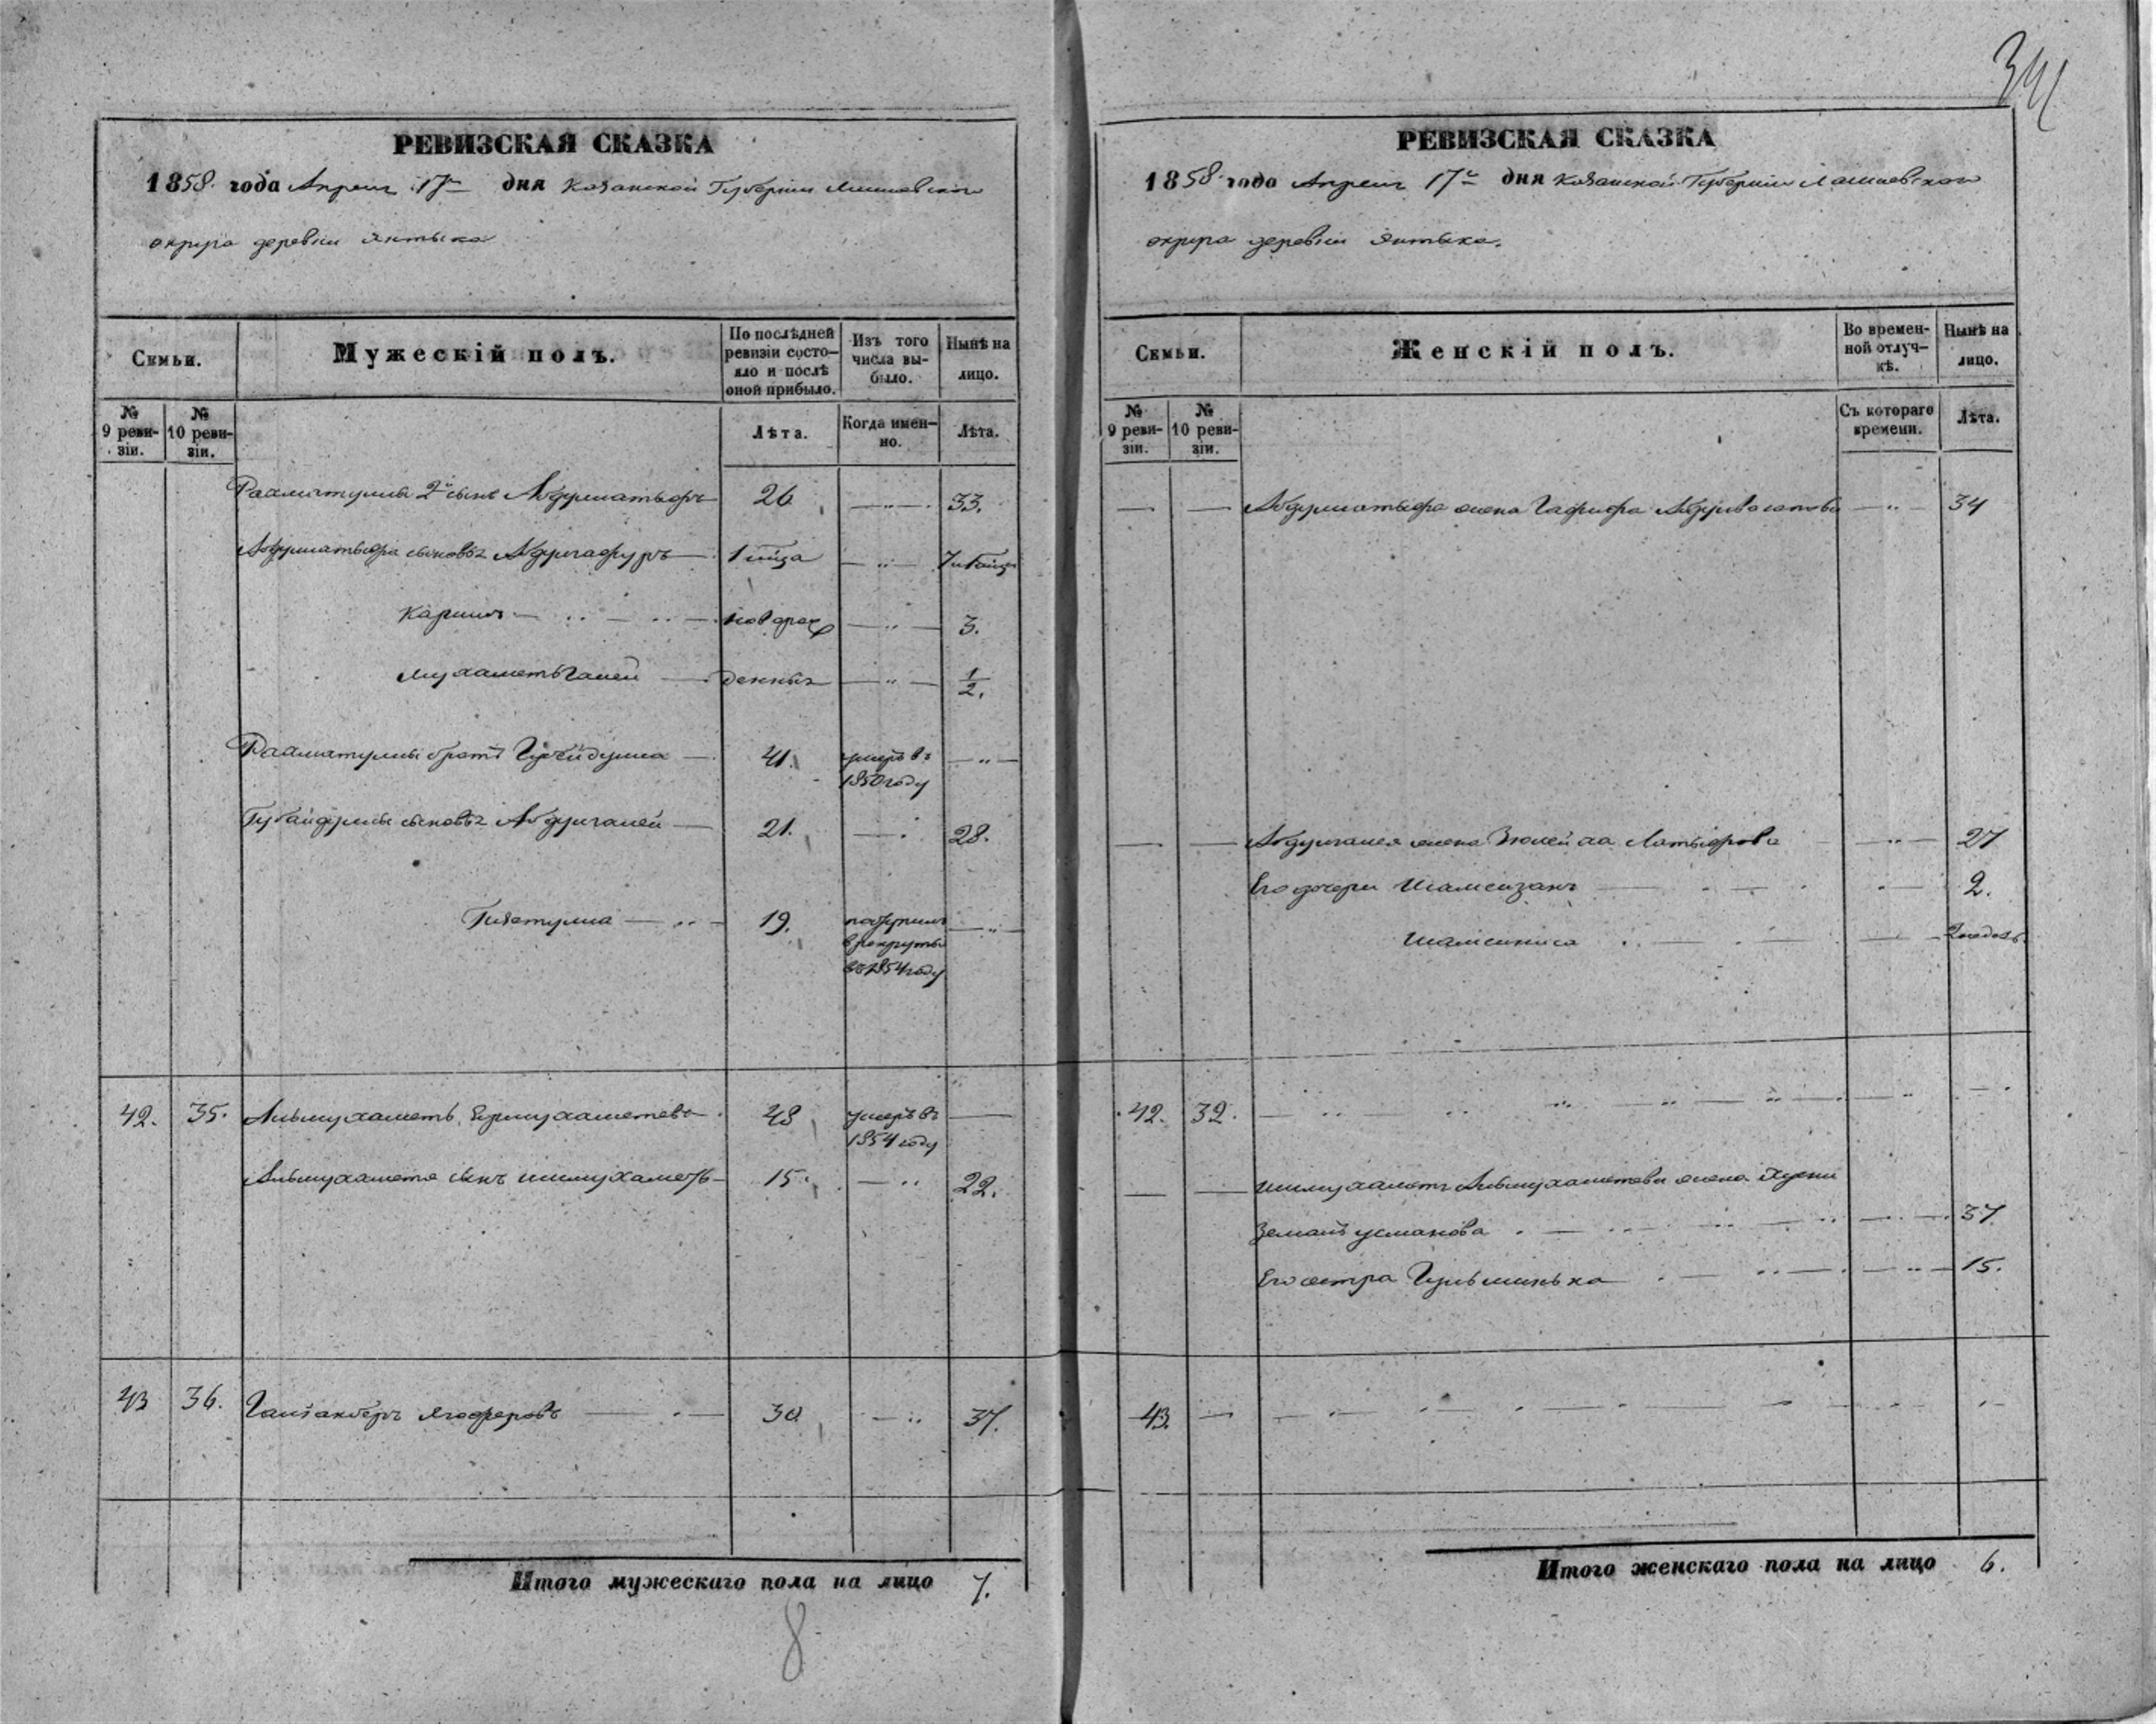 341
РЕВИЗСКАЯ СКАЗКА
1858. года Апреля 17го дня Казанской Губернии Лаишевскаго
округа деревни Янтыка
Семьи.
Мужескій полъ.
По послѣдней ревизіи состо-яло и послѣ оной прибыло.
Изъ того числа вы-было.
Нынѣ на лицо.
№ 9 реви-зіи.
№ 10 реви-зіи.
Лѣта.
Когда имен-но.
Лѣта.
Рахматуллы 2й сынъ Абдуллатыфъ 26 — " — 33.
Абдуллатыфа сыновья Абдулгафуръ 1 года — " — 7
Каримъ — " — " — новорож — " — 3.
Мухаметьганей — денныя — " — 1/2.
Рахматуллы братъ Губейдулла — 41. умеръ въ 1850 году — " —
Губайдуллы сыновья Абдулганей — 21. — " 28.
Гизетулла — " — 19. поступилъ в рекруты въ 1854 году — " —
42. 35. Альмухаметь Ермухаметевъ 48 умеръ въ 1854 году —
Альмухаметя сынъ Шимухаметь — 15. — " 22.
43 36. Ягоферовъ — " — 30 — " 37.
Итого мужескаго пола на лицо 7.
8
РЕВИЗСКАЯ СКАЗКА
1858. года Апреля 17го дня Казанской Губернии Лаишевскаго
округа деревни Янтыка.
Семьи.
Женскій полъ.
Во времен-ной отлуч-кѣ.
Нынѣ на лицо.
№ 9 реви-зіи.
№ 10 реви-зіи.
Съ котораго времени.
Лѣта.
— — Абдуллатыфа жена Гафифа — " — 34
— — Абдулганея жена Зюлейха Латыфова — " — 27
Его дочери Шамсизянъ — " — 2.
Шамсиниса — " — 2 недель
42. 32. — " " " — " — " — " — "
— — Шимухаметя Альмухаметева жена
Земалъ Усманова — " — 37.
Его сестра Гульминька — " — 15.
43. — — " — " — " — " —
Итого женскаго пола на лицо 6.